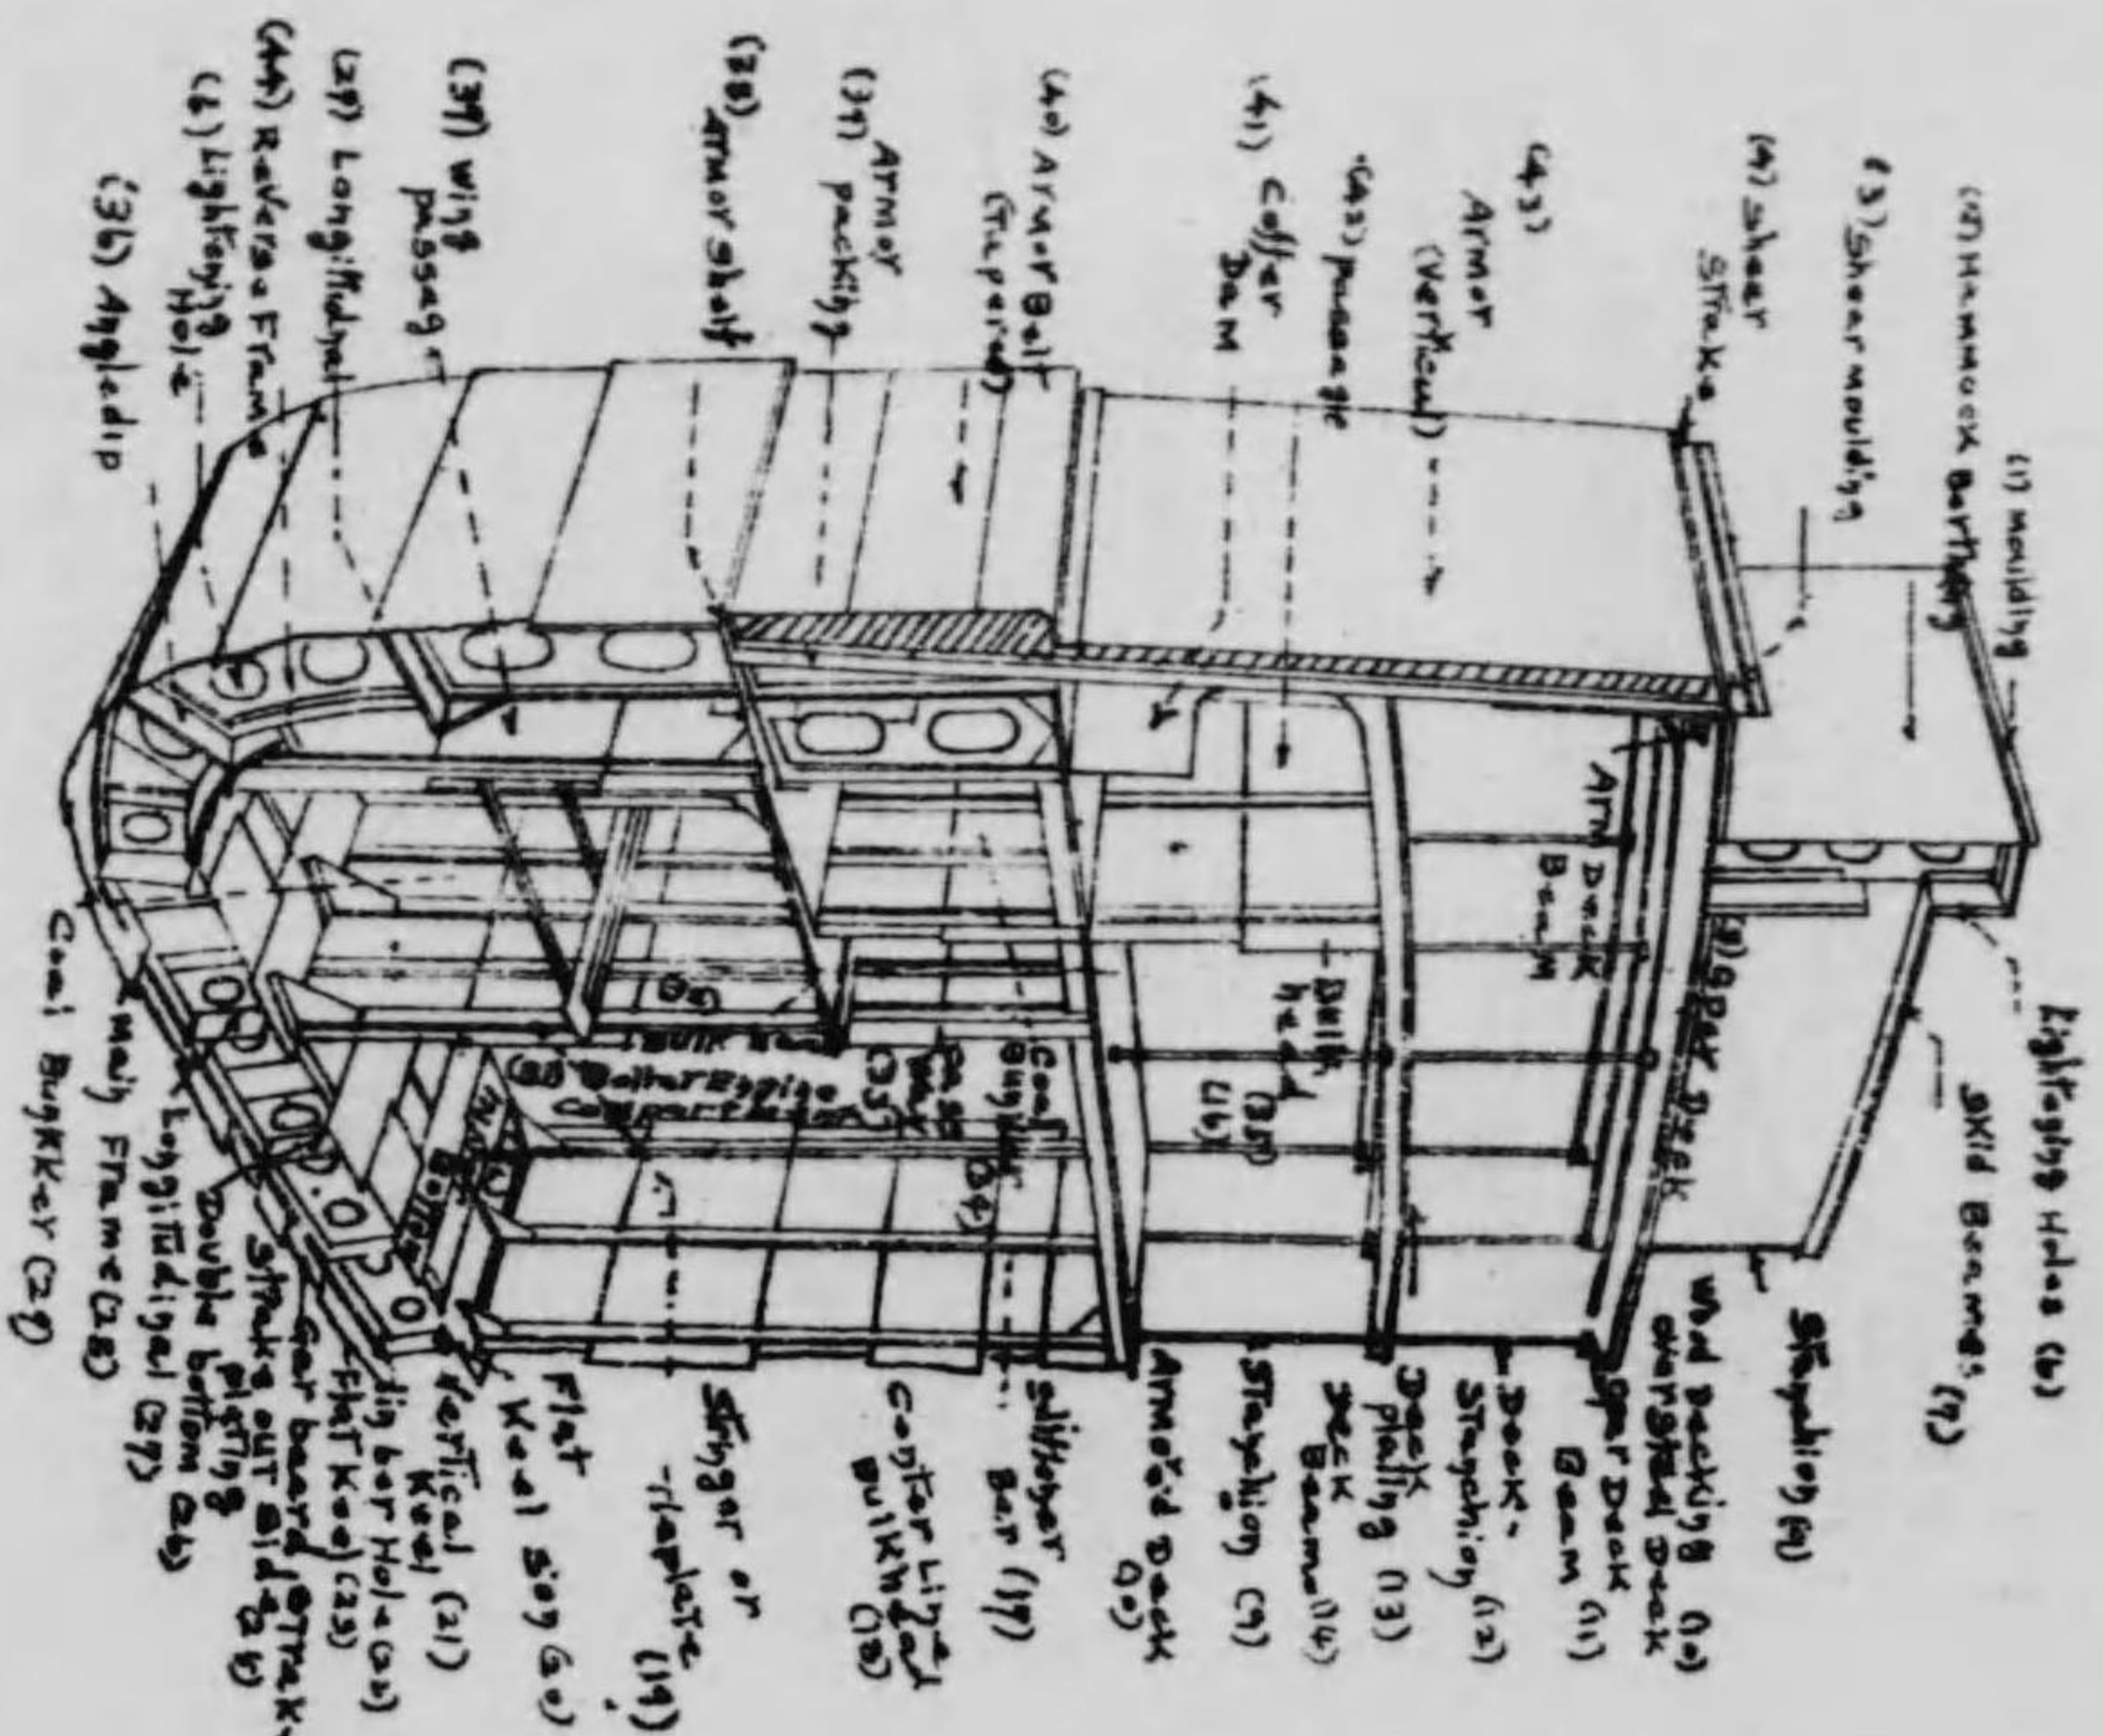 (1) moulding
(2) Hammock Berthing
(3) Shear moulding
(4) Sheer
Strake
(43)
Armor
(Vertical)
(42) passage
(41) Coffer
Dam
(40) Armor Belt
(Tapered)
Armor
(39) packing
(38)
Armor shelf
(37) wing
passage
(29) Longitudinal
(44) Reverse Frame
(6) Lightening
Hole
(36) Angledip
Lightening Holes (6)
Skid Beames (7)
Stanchion (9)
Wod Decking (10)
over steel Deck
Spar Deck
Beam (11)
Deck-
Stanchion (12)
Deck
plating (13)
Deck
Beams (14)
Stanchion (9)
Armored Deck
Stiffener
Bar (17)
Center Line
Bulkhead
(18)
Stinger or
Tieplate
(19)
Flat
Keel
Vertical (21)
Keel
Flat Keel (23)
Garboard Strak-
Strake out side
Double bottom
plating
Longitudinal (27)
Main Frame (28)
Coal Bunkker (29)
Arm Deck
Beam
Spar Deck
Bulk
head
(35)
(16)
Coal
Bunker
(34)
(35)
Boiler Engine
Compartment
Inner
Bottom